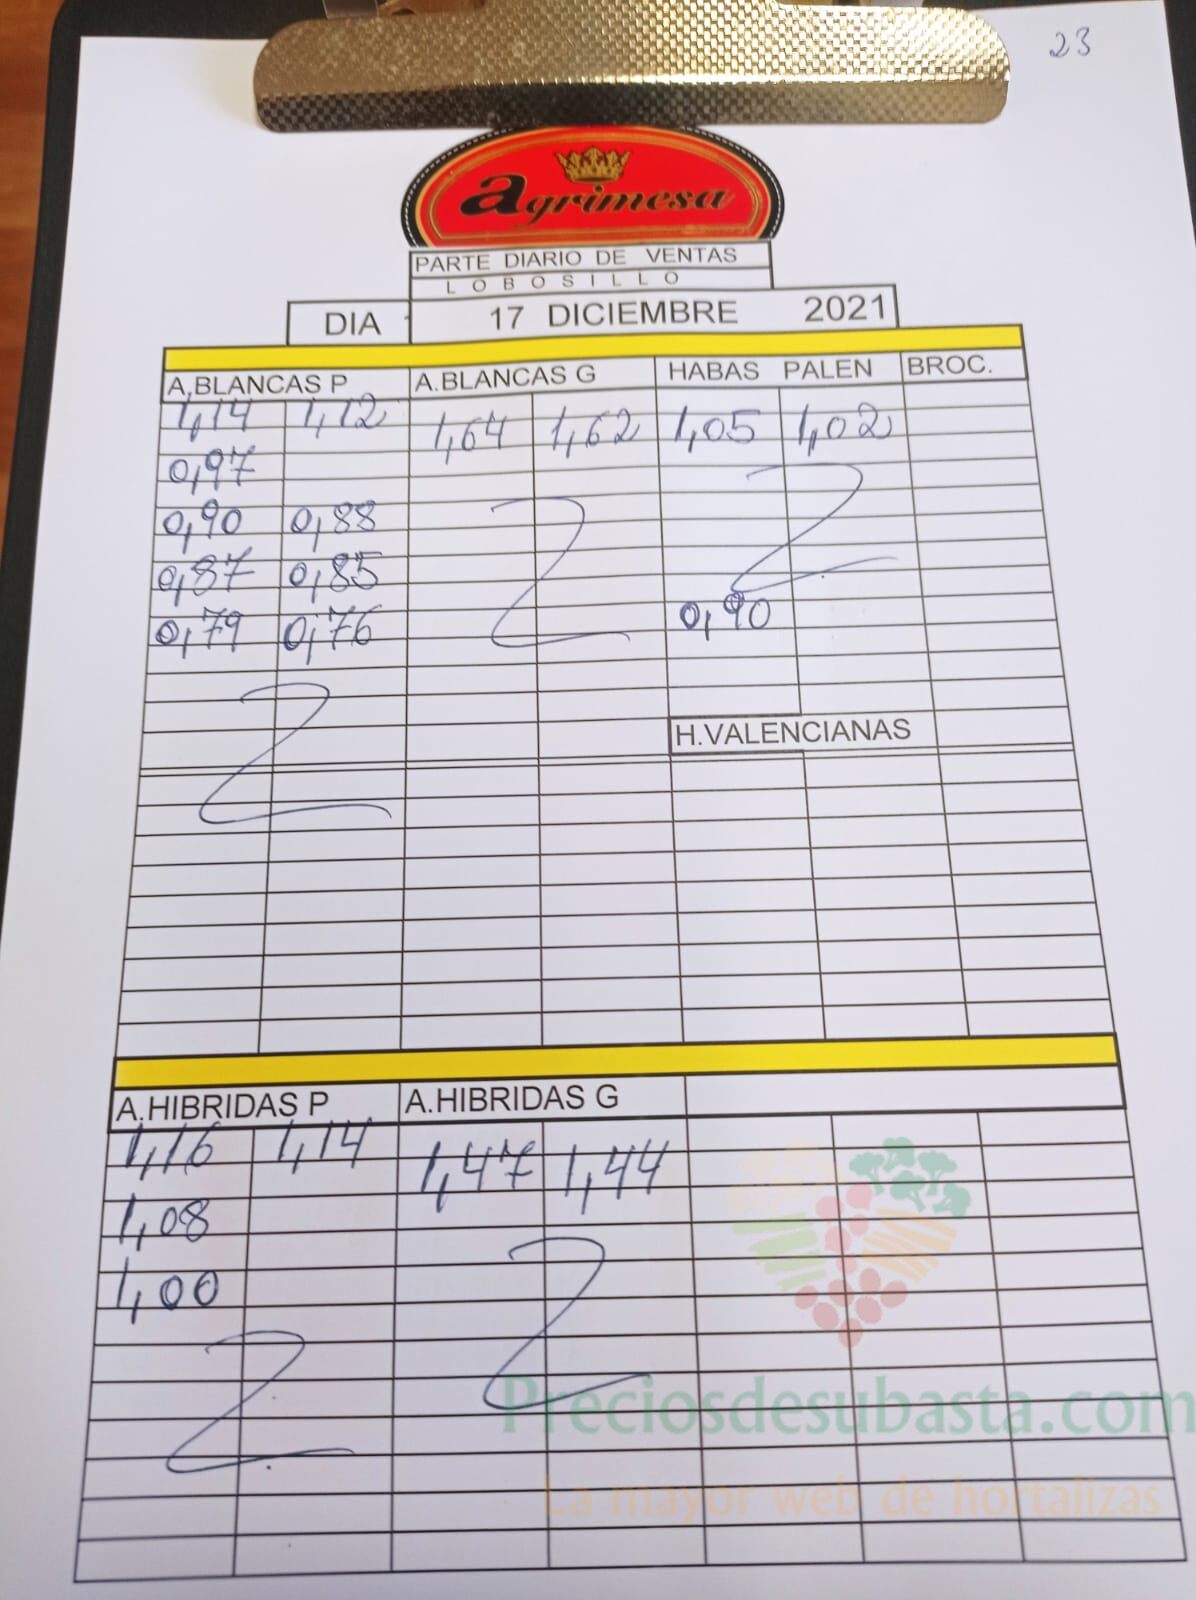 23
agrimesa
PARTE DIARIO DE VENTAS
LOBOSILLO
DIA 17 DICIEMBRE 2021
A,BLANCAS P A.BLANCAS G HABAS PALEN BROC.
1,14 1,12 1,64 1,62 1,05 1,02
0,97
0,90 0,88
0,87 0,85
0,79 0,76 0,90
H.VALENCIANAS
A.HIBRIDAS P A.HIBRIDAS G
1,16 1,14 1,47 1,44
1,08
1,00
Preciosdesubasta.com
La mayor web de hortalizas